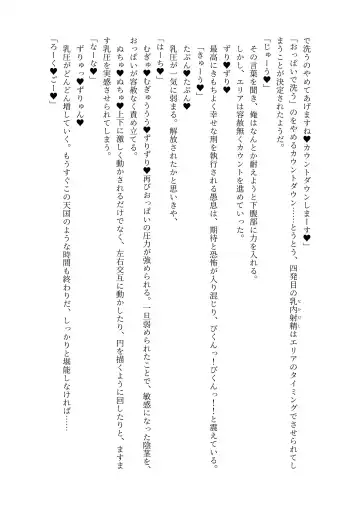 で洗うのやめてあげますね♥カウントダウンしまーす♥」
「おっぱいで洗う」のをやめるカウントダウン……とうとう、四発目の乳内射精はエリアのタイミングでさせられてし
まうことが決定されたようだ。
「じゅーう♥」
その言葉を聞き、俺はなんとか耐えようと下腹部に力を入れる。
しかし、エリアは容赦無くカウントを進めていった。
ずり♥ずり♥
最高にきもちよく幸せな刑を執行される愚息は、期待と恐怖が入り混じり、びくんっ!びくんっ!!と震えている。
「きゅーう♥」
たぷん♥たぷん♥
乳圧が一気に弱まる。解放されたかと思いきや、
「はーち♥」
むぎゅ♥むぎゅううう♥ずりずり♥再びおっぱいの圧力が強められる。一旦弱められたことで、敏感になった陰茎を、
おっぱいが容赦なく責め立てる。
ぬちゅ♥ぬちゅ♥上下に激しく動かされるだけでなく、左右交互に動かしたり、円を描くように回したりと、ますま
す乳圧を実感させられてしまう。
「なーな♥」
ずりゅっ♥ずりゅん♥
乳圧がどんどん増していく。もうすぐこの天国のような時間も終わりだ、しっかりと堪能しなければ……
「ろーく♥ごー♥」